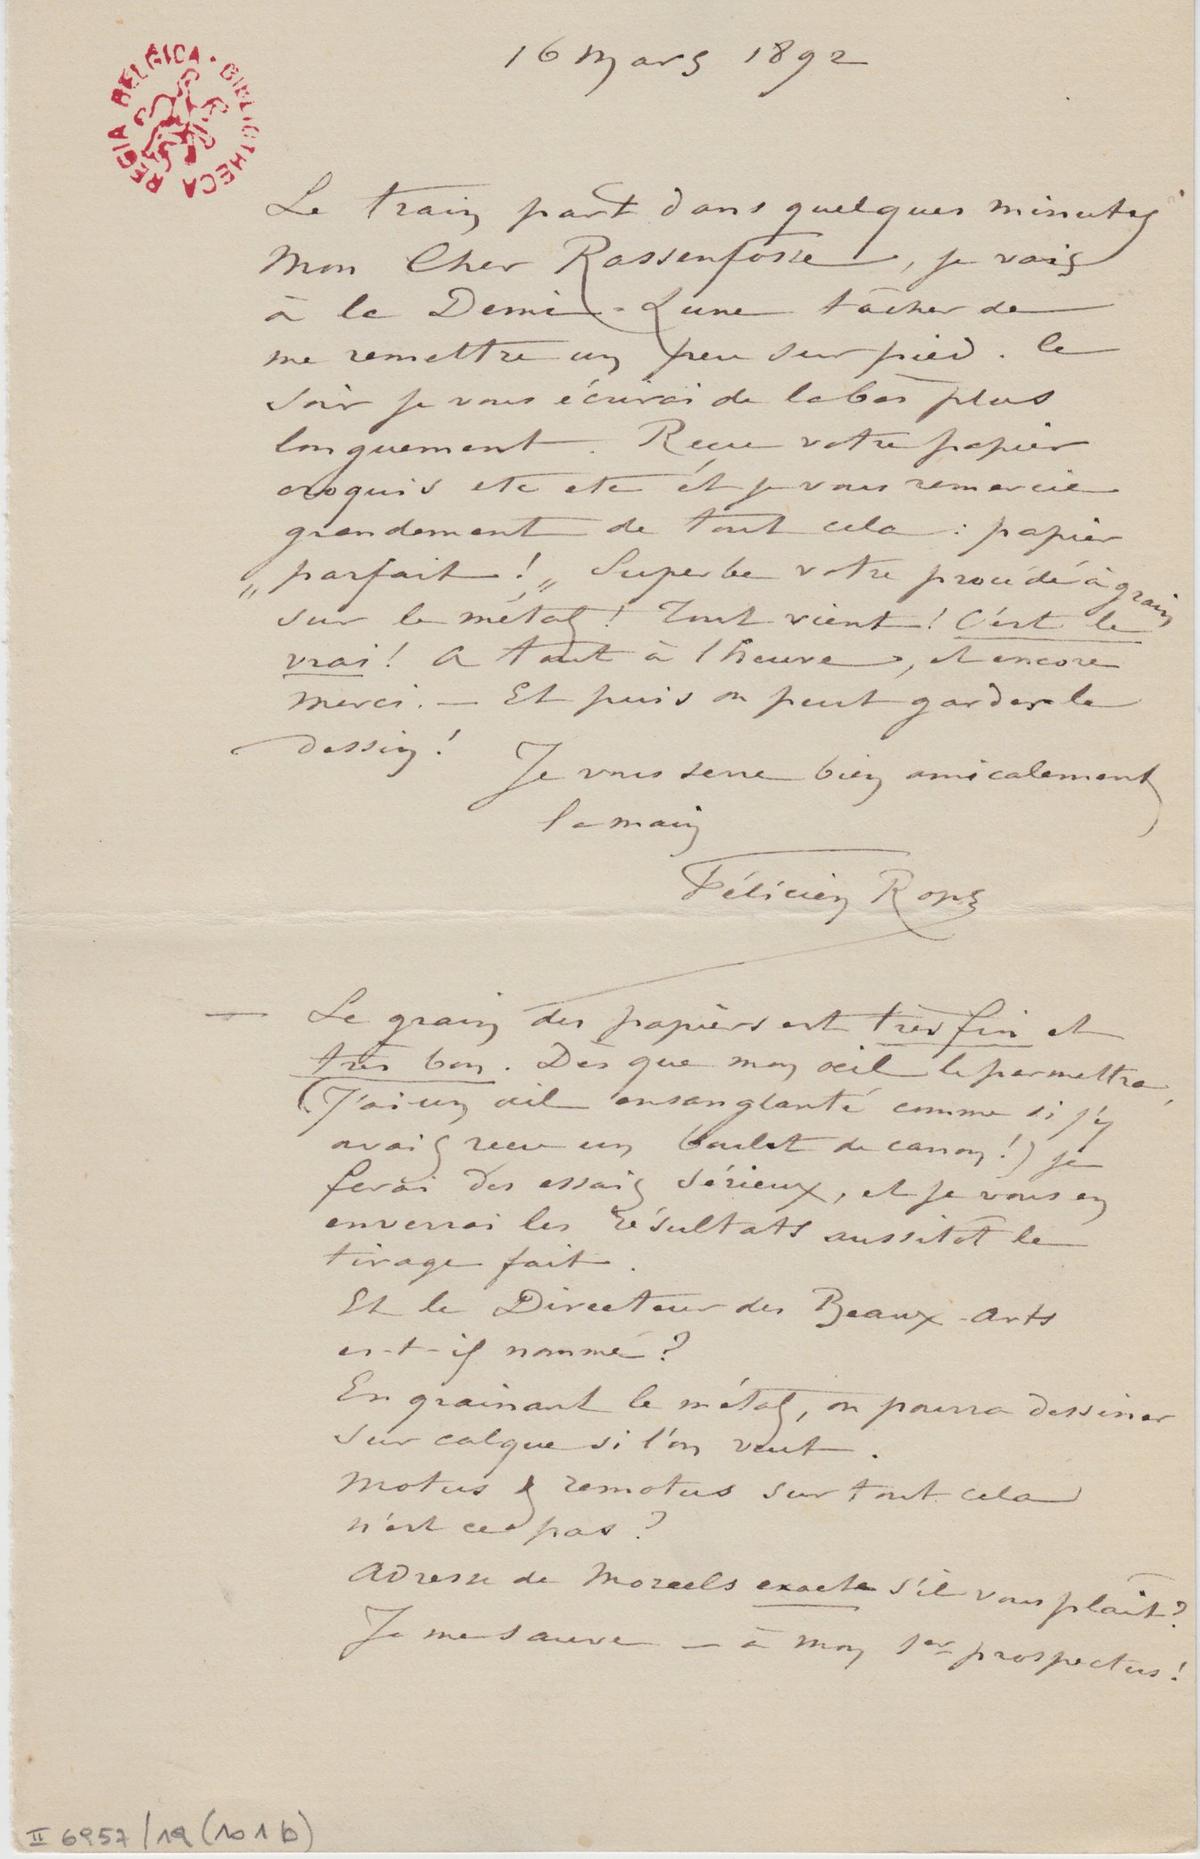 16 Mars 1892
REGIA BELGICA · BIBLIOTHECA
Le train part dans quelques minutes
Mon Cher Rassenfosse, je vais
à la Demi-Lune tâcher de
me remettre un peu sur pied. Ce
soir je vous écrirai de labas plus
longuement. Reçu votre papier
croquis etc etc et je vous remercie
grandement de tout cela : papier
„ parfait ! „ Superbe votre procédé à grain
sur le métal ! Tout vient ! C'est le
vrai ! A tout à l'heure, et encore
merci. — Et puis on peut garder le
dessin !
Je vous serre bien amicalement
la main
Félicien Rops
— Le grain des papiers est très fin et
très bon. Dès que mon œil le permettra,
(J'ai un œil ensanglanté comme si j'y
avais reçu un boulet de canon !) je
ferai des essais sérieux, et je vous en
enverrai les résultats aussitôt le
tirage fait.
Et le Directeur des Beaux-Arts
es-t-il nommé ?
En grainant le métal, on pourra dessiner
sur calque si l'on veut.
Motus & remotus sur tout cela
n'est ce pas ?
Adresse de exacte s'il vous plait ?
Je me sauve — à mon 1er prospectus !
II 6957/19 (101 b)